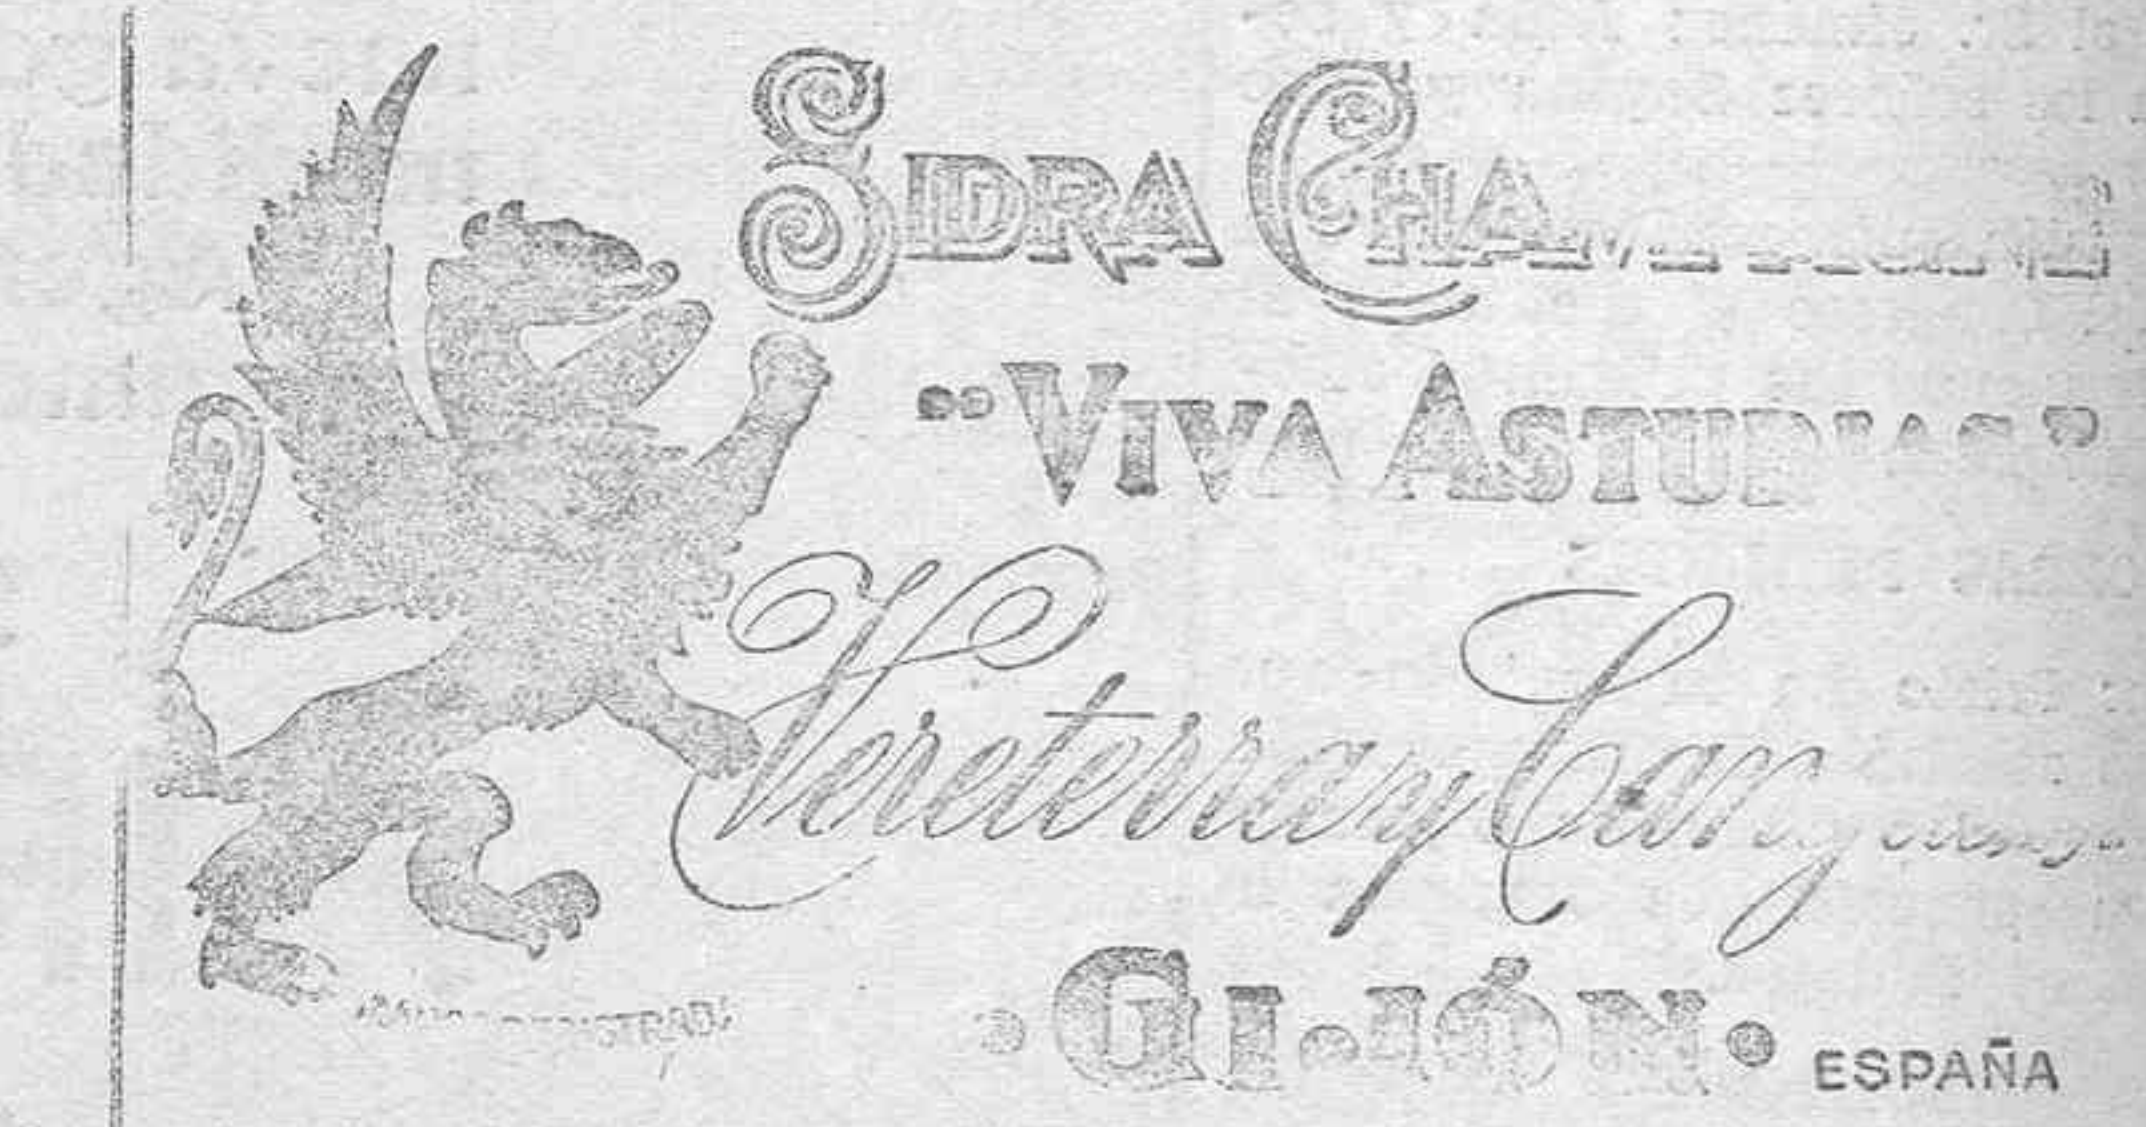 SIDRA CHAMPAGNE
"VIVA ASTURIAS"
Vereterra y Cangas
GIJÓN
ESPAÑA